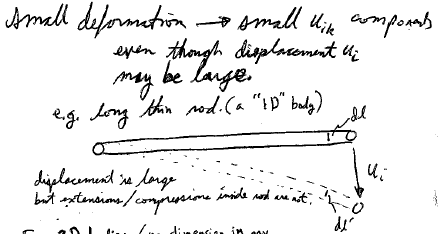 small deformation → small u_ik components
even though displacement u_i
may be large.
e.g. long thin rod. (a "1D" body)
dl
u_i
displacement is large
but extensions/compressions inside rod are not.
dl'